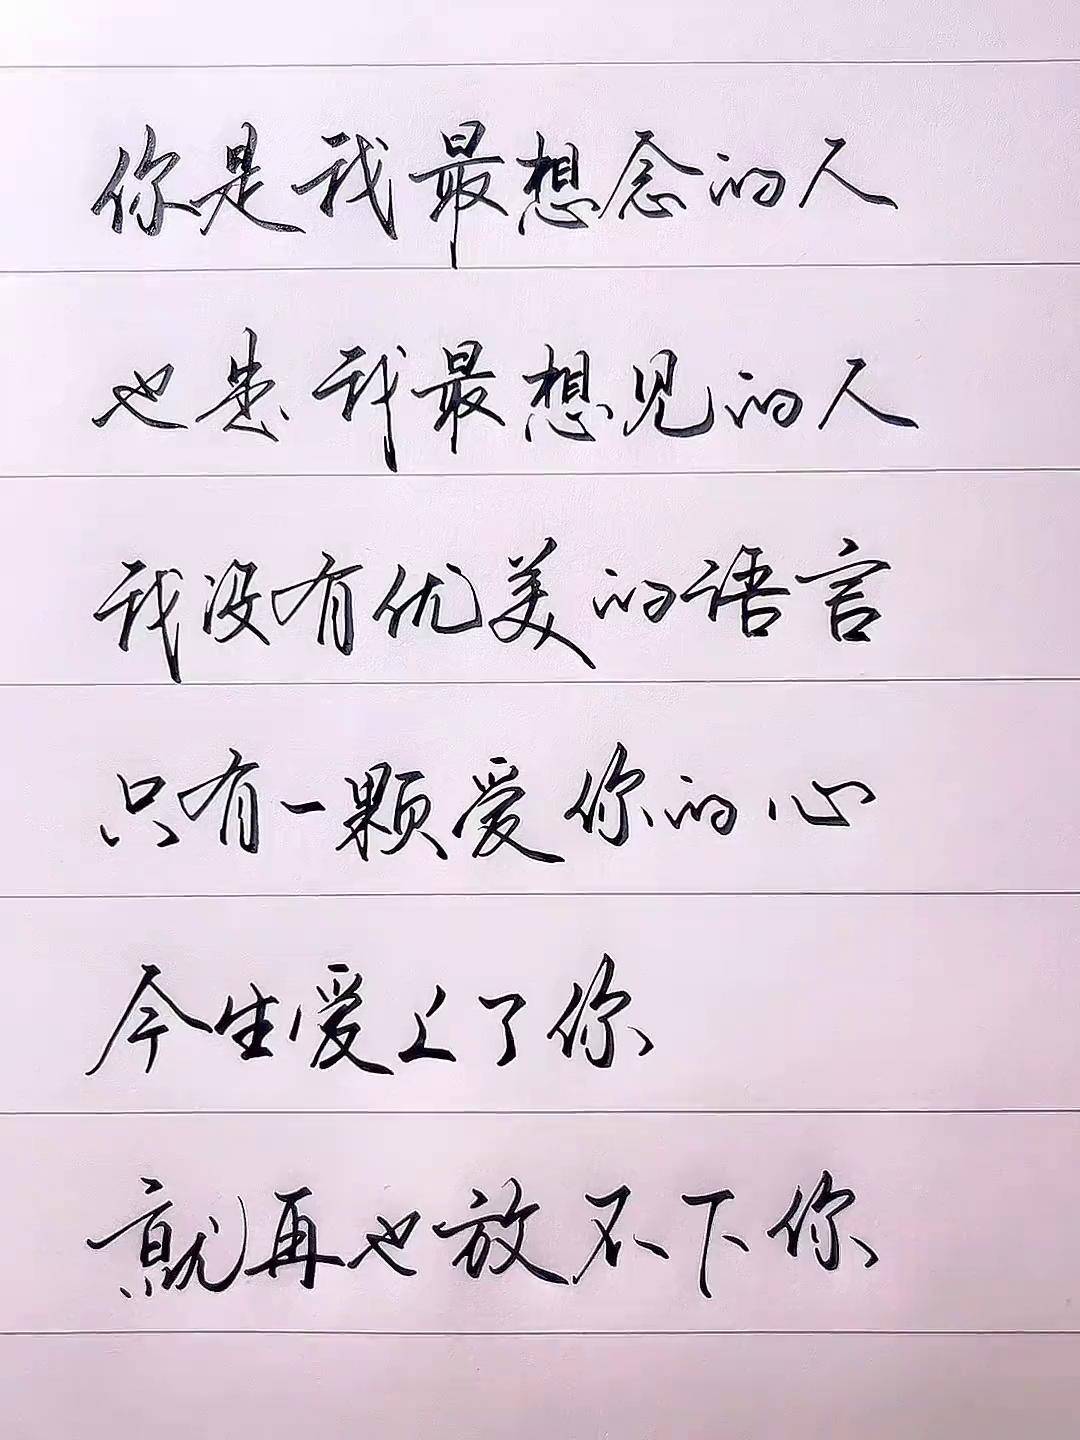 你是我最想念的人
也是我最想见的人
我没有优美的语言
只有一颗爱你的心
今生爱上了你
就再也放不下你